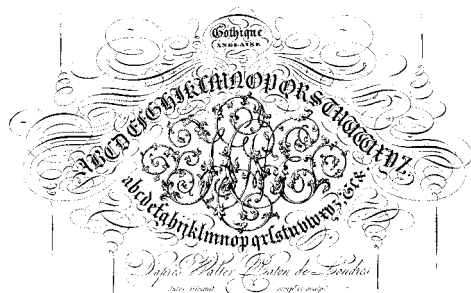 Gothique
ANGLAISE.
ABCDEFGHIKLMNOPQRSTUVWXYZ.
abcdefghijklmnopqrſstuvwxyz, &c&.
D'après Walter Paton de Londres
scrip.t et sculp.t